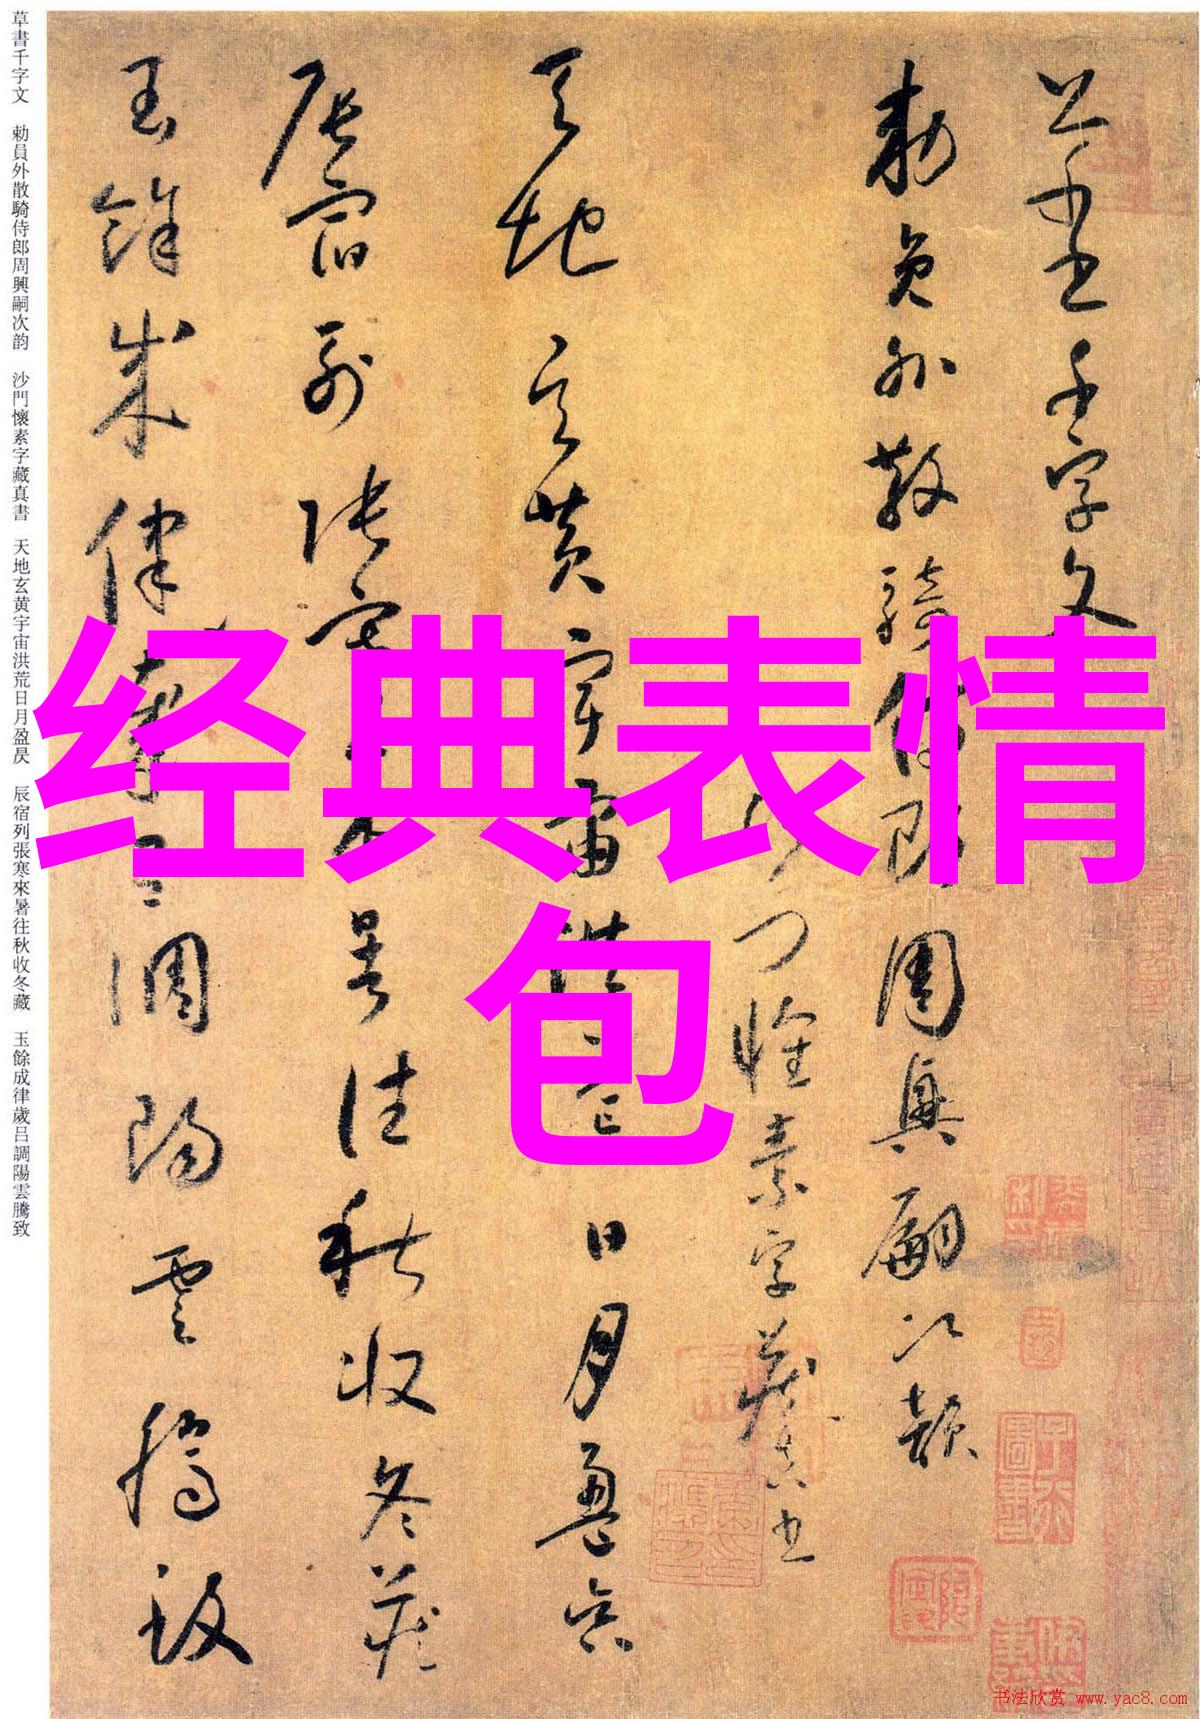 草書千字文
勅員外散騎侍郎周興嗣次韻
沙門懷素字藏真書
天地玄黃宇宙洪荒日月盈昃
辰宿列張寒來暑往秋收冬藏
玉餘成律歲呂調陽雲騰致
草書千字文 勅員外散騎侍郎周興嗣次韵 沙門懷素字藏真書 天地玄黄宇宙洪荒日月盈昃 辰宿列張寒來暑往秋收冬藏 玉餘成律歲吕調陽雲騰致
经典表情
包
书法欣赏 www.yac8.com